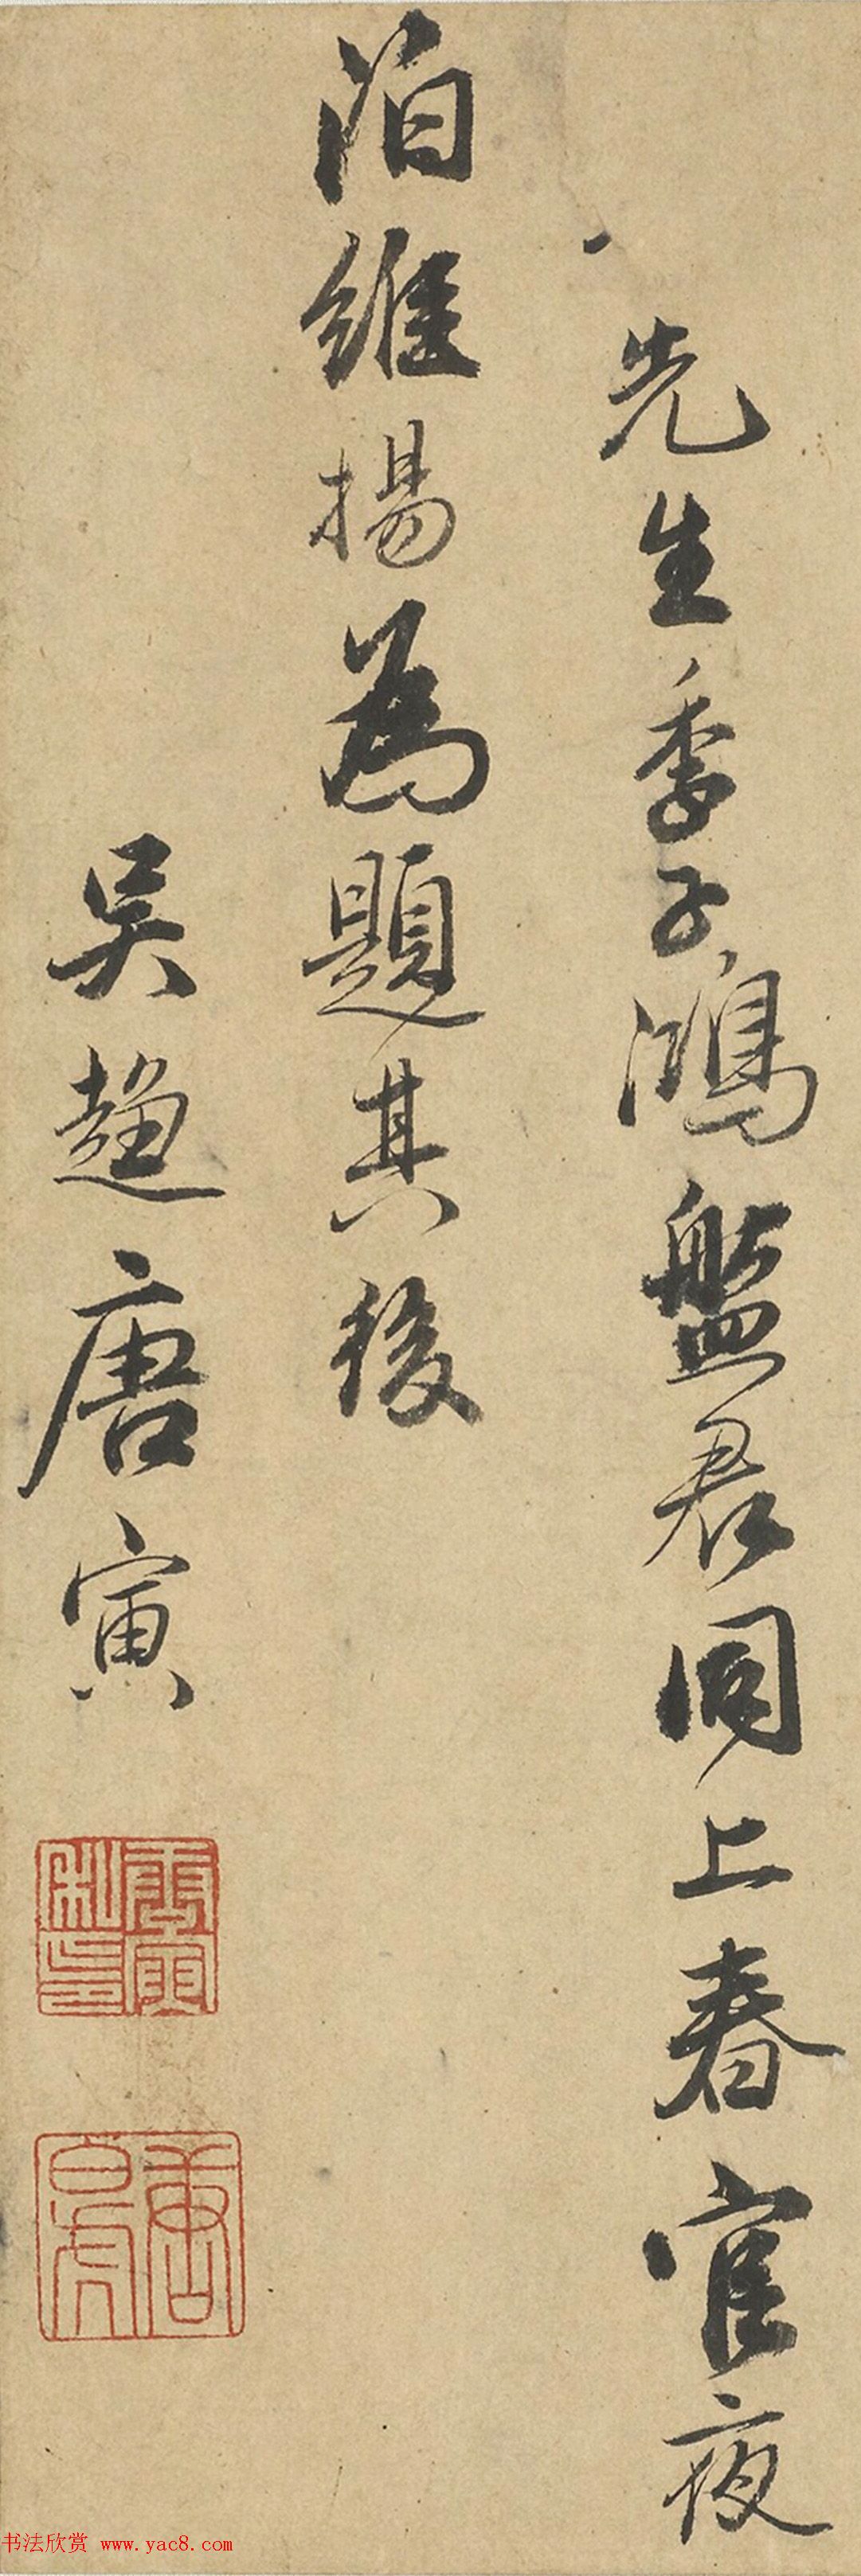 先生季子鴻盤君同上春官夜
泊維揚為題其後
吳趨唐寅
唐寅私印
唐白虎
书法欣赏 www.yac8.com